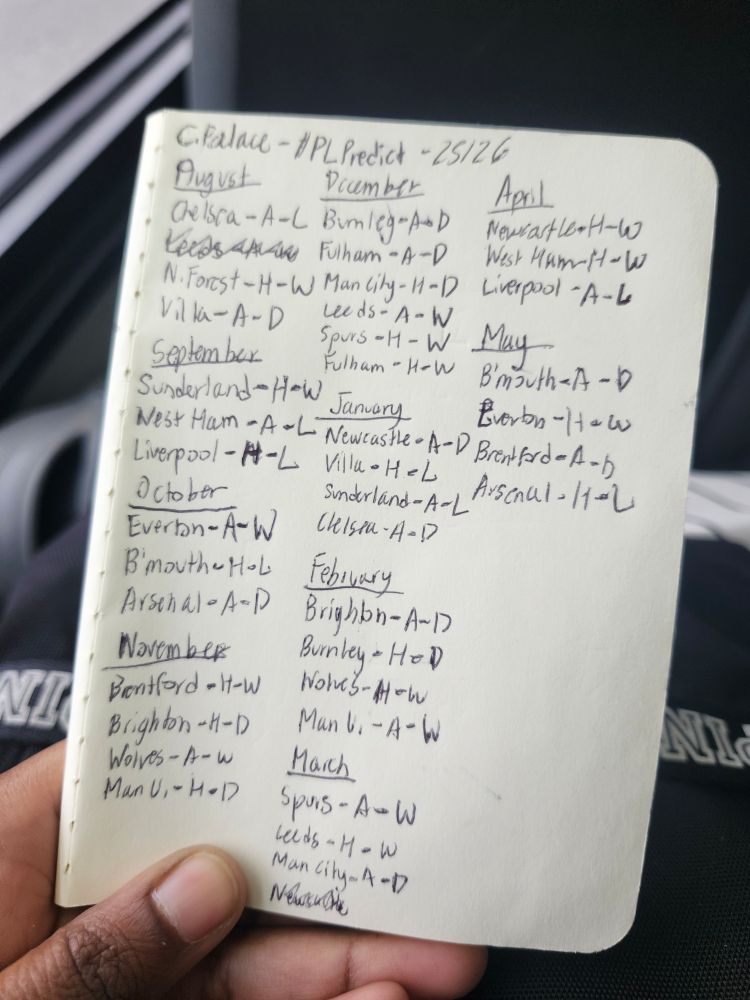 C. Palace - #PLPredict - 25/26
August
Chelsea - A - L
N. Forest - H - W
Villa - A - D
September
Sunderland - H - W
West Ham - A - L
Liverpool - H - L
October
Everton - A - W
B'mouth - H - L
Arsenal - A - D
November
Brentford - H - W
Brighton - H - D
Wolves - A - W
Man U. - H - D
December
Burnley - A - D
Fulham - A - D
Man City - H - D
Leeds - A - W
Spurs - H - W
Fulham - H - W
January
Newcastle - A - D
Villa - H - L
Sunderland - A - L
Chelsea - A - D
February
Brighton - A - D
Burnley - H - D
Wolves - H - W
Man U. - A - W
March
Spurs - A - W
Leeds - H - W
Man City - A - D
April
Newcastle - H - W
West Ham - H - W
Liverpool - A - L
May
B'mouth - A - D
Everton - H - W
Brentford - A - D
Arsenal - H - L
PIN